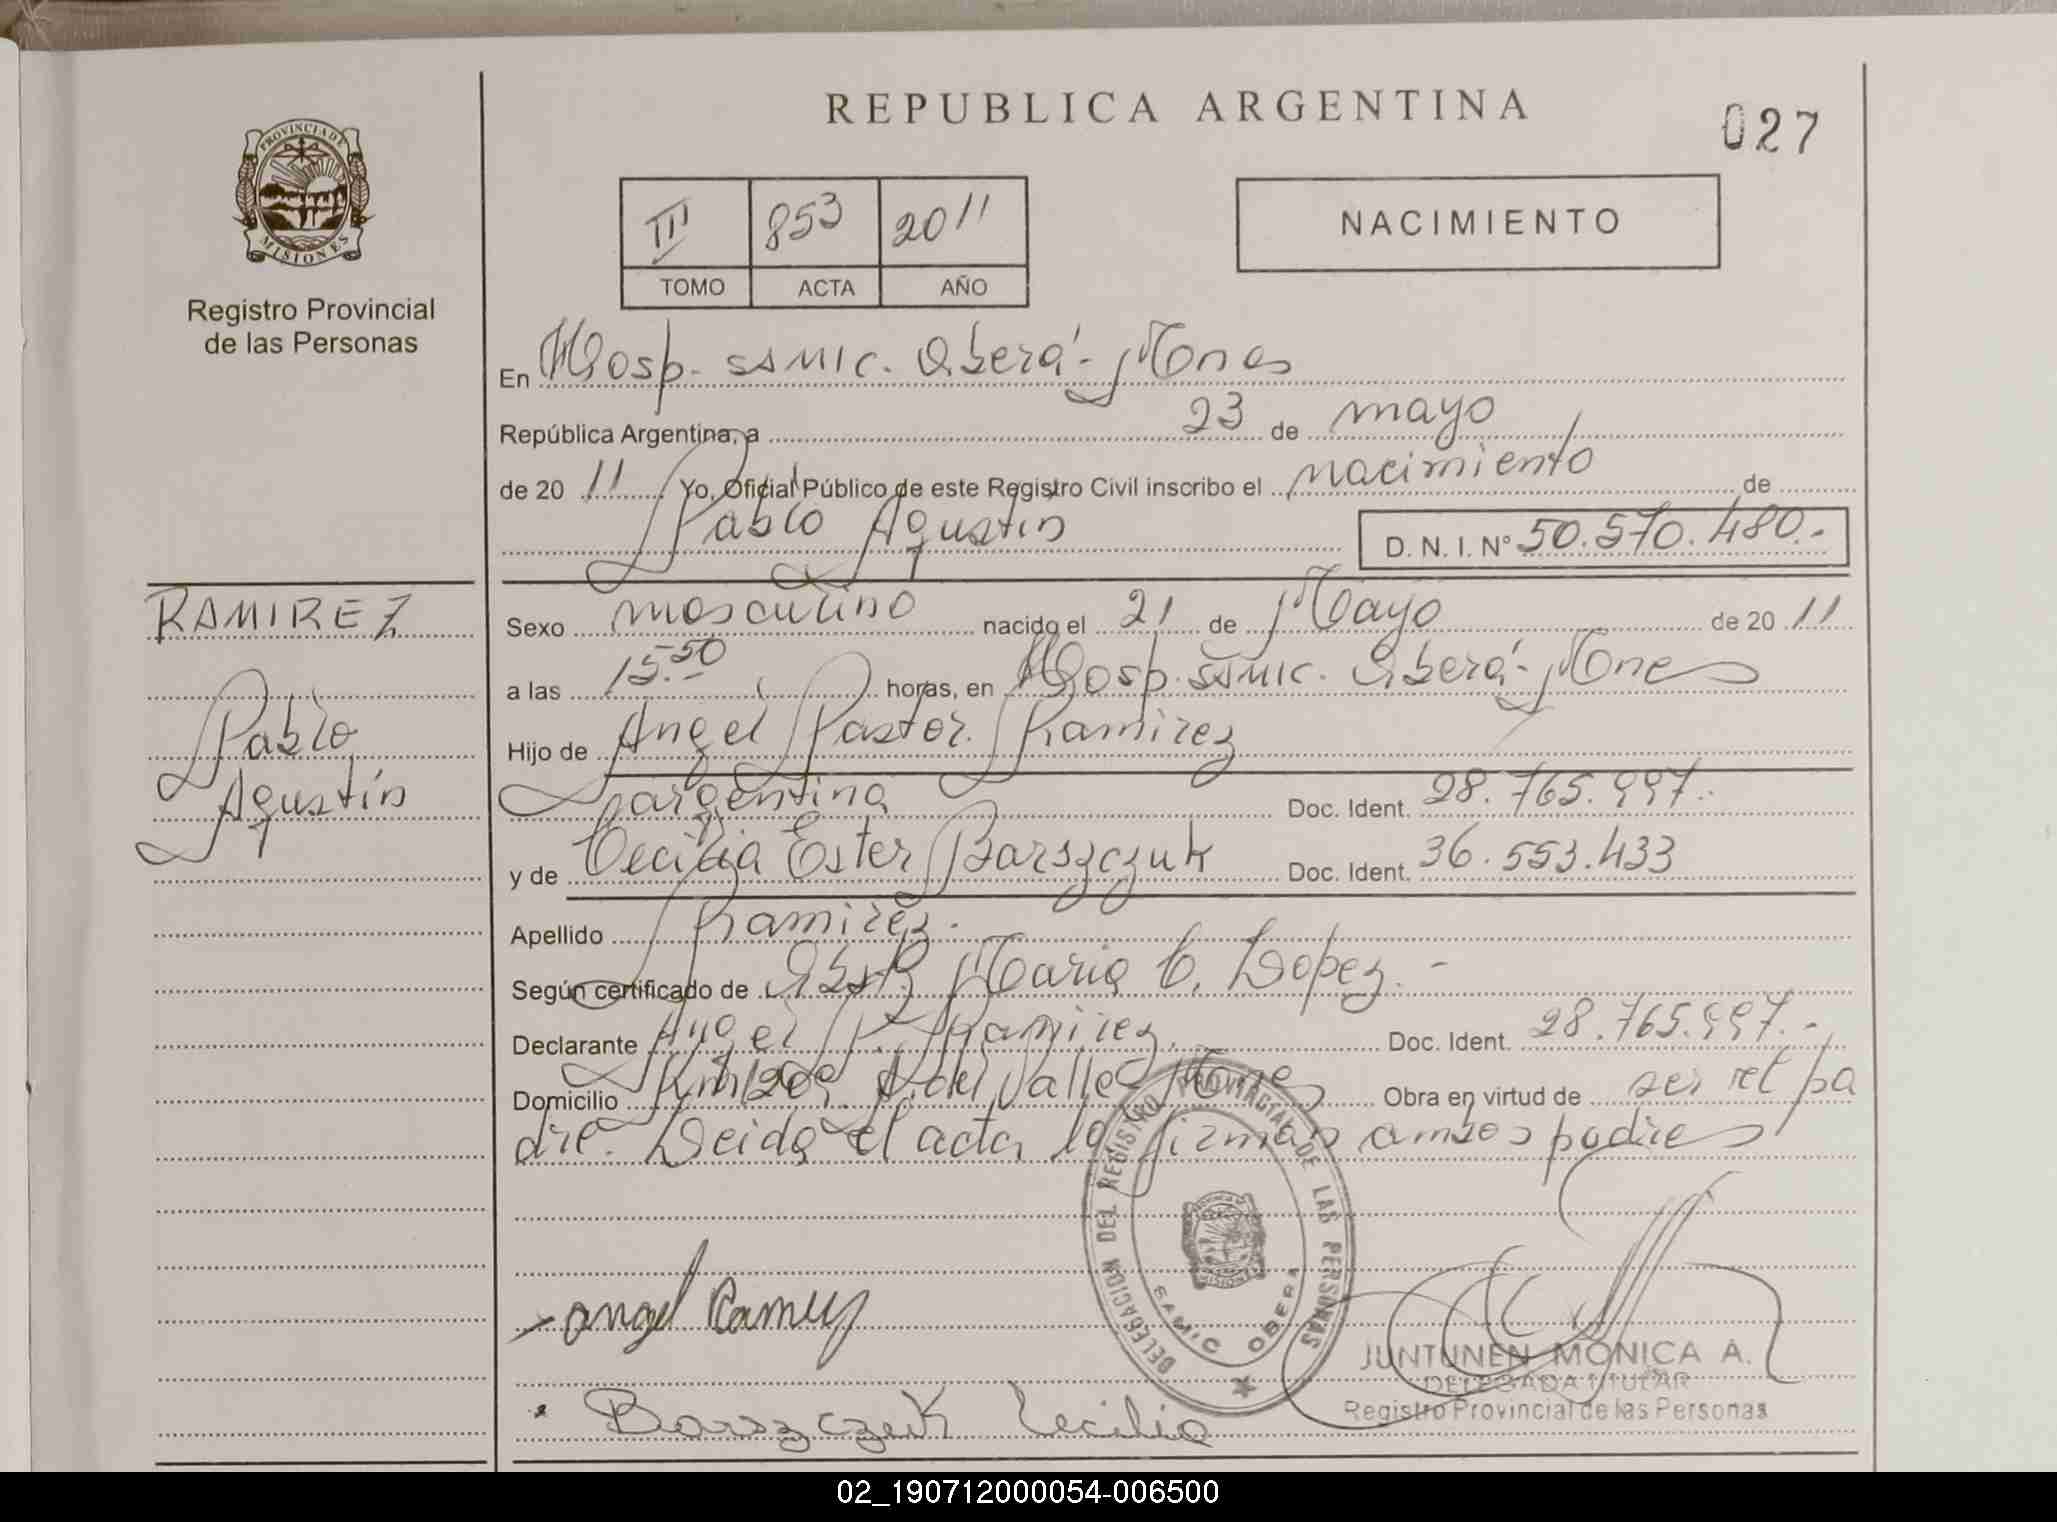 REPUBLICA ARGENTINA
027
PROVINCIA DE MISIONES
Registro Provincial
de las Personas
III 853 2011
TOMO ACTA AÑO
NACIMIENTO
En Hosp. SAMIC. Oberá - Mnes
República Argentina, a 23 de mayo
de 20 11 Yo, Oficial Público de este Registro Civil inscribo el nacimiento de
Pablo Agustín D. N. I. N° 50.570.480.-
RAMIREZ
Pablo
Agustín
Sexo masculino nacido el 21 de Mayo de 20 11
a las 15.50 horas, en Hosp. SAMIC. Oberá - Mnes
Hijo de Angel Pastor Ramirez
argentina Doc. Ident. 28.765.997.-
y de Cecilia Ester Barszczuk Doc. Ident. 36.553.433
Apellido Ramirez.-
Según certificado de Obst. Maria C. Lopez.-
Declarante Angel P. Ramirez. Doc. Ident. 28.765.997.-
Domicilio del Valle Mnes Obra en virtud de ser el pa
dre. Leida el acta, la firman ambos padres
angel Ramirez
Barszczuk Cecilia
DELEGACION DEL REGISTRO PROVINCIAL DE LAS PERSONAS
SAMIC OBERA
JUNTUNEN MONICA A.
DELEGADA TITULAR
Registro Provincial de las Personas
02_190712000054-006500